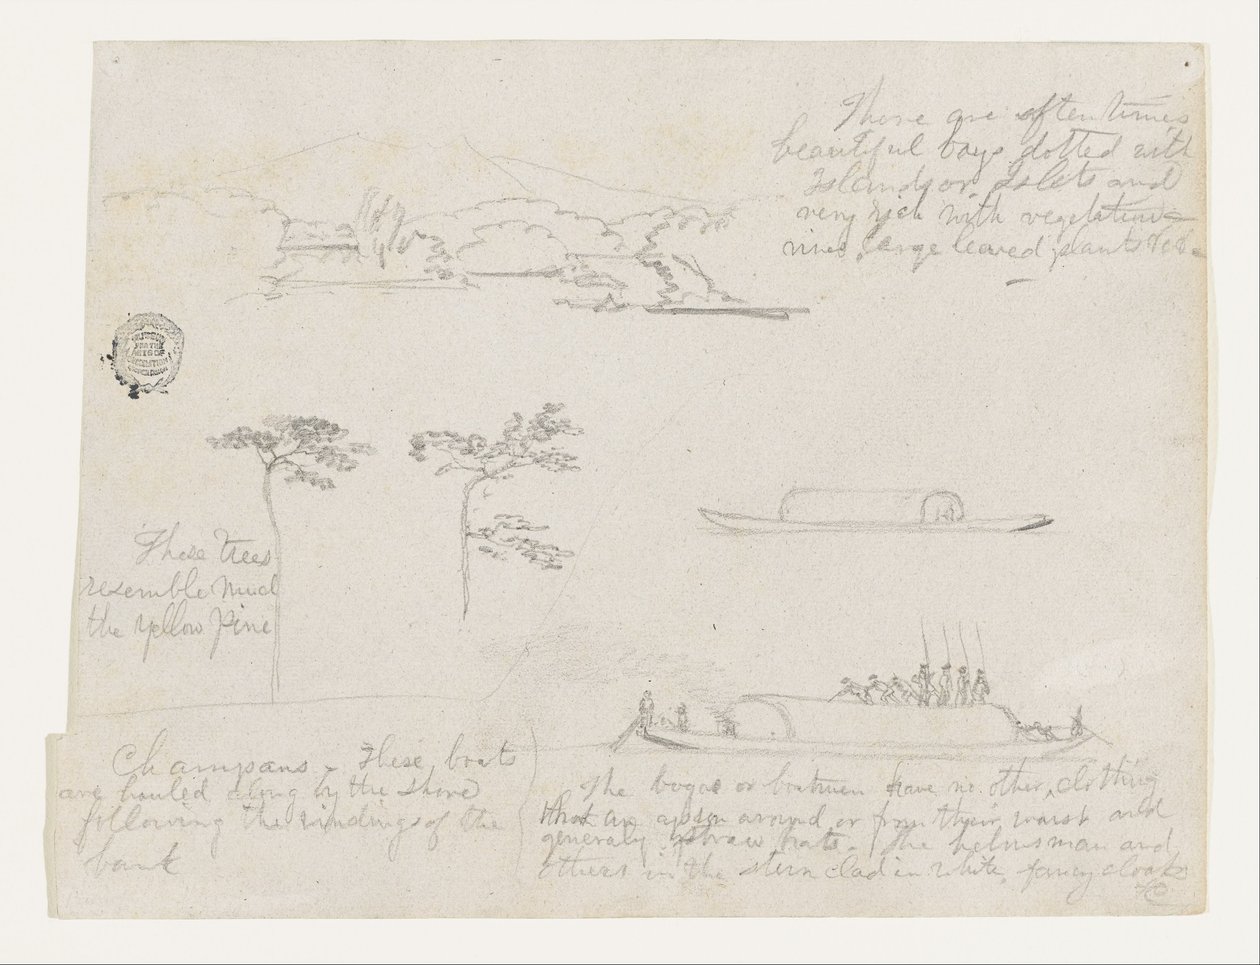 There are often times
beautiful bays dotted with
Islands or Islets and
very rich with vegetation=
vines, large leaved plants &c&c=
MUSEUM
FOR THE
ARTS OF
DECORATION
These trees
resemble much
the yellow Pine
Champans - These, boats
are hauled along by the shore
following the windings of the
bank
The bogas or boatmen have no other, clothing
than an apron around or from their waist and
generaly straw hats. The helmsman and
others in the stern clad in white, fancy cloaks
&c